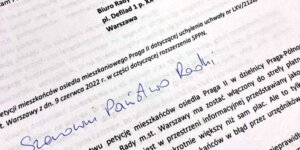 Biuro Rady
pl. Defilad 1 p. XX
Warszawa
petycji mieszkańców osiedla mieszkaniowego Praga II dotyczącej uchylenia uchwały nr LXV/212
st. Warszawy z dn. 9 czerwca 2022 r. w części dotyczącej rozszerzenia SPPN.
Szanowni Państwo Radni
petycji mieszkańców osiedla Praga II w dzielnicy Praga-Połu
Rady m.st. Warszawy ma zostać włączony do strefy płatn
jest w przestrzeni informacyjnej przedstawiany jako
większy niż sam plac. Ale to tylko
w błąd przez urzędnikó